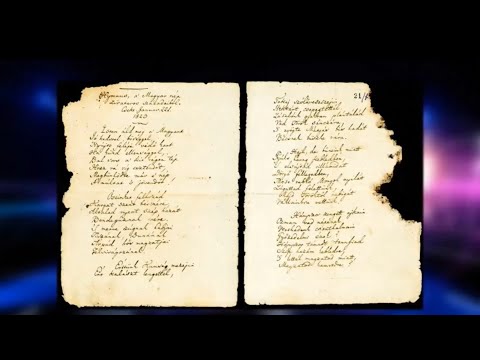 Hymnus, a' Magyar nép
zivataros századaiból.
Cseke Januar 22d
1823.
Isten áld meg a Magyart
Jó kedvvel, bőséggel,
Nyújts feléje védő kart
Ha küzd ellenséggel;
Bal sors a' kit régen tép
Hozz rá víg esztendőt,
Megbünhödte már e' nép
A' multat 's jövendőt.
Őseinket felhozád
Kárpát szent bérczére,
Általad nyert szép hazát
Bendegúznak vére.
'S merre zúgnak habjai
Tiszának, Dunának,
Árpád hős magzatjai
Felvirágozának.
Értünk Kunság mezején
Ért kalászt lengettél,
21/
Tokaj szőlővesszejin
Nektárt csepegtettél.
Zászlónk gyakran plántálád
Vad Török sánczára,
'S nyögte Mátyás bús hadát
Bécsnek büszke vára.
Hajh, de bűneink miatt
Gyúlt harag kebledben,
'S elsújtád villámidat
Dörgő fellegedben,
Most rabló Mongol nyilát
Zúgattad felettünk,
Majd Töröktől rabigát
Vállainkra vettünk.
Hányszor zengett ajkain
Ozman vad népének
Vert hadunk csonthalmain
Győzedelmi ének!
Hányszor támadt tenfiad
Szép hazám kebledre,
'S lettél magzatod miatt
Magzatod hamvvedre?